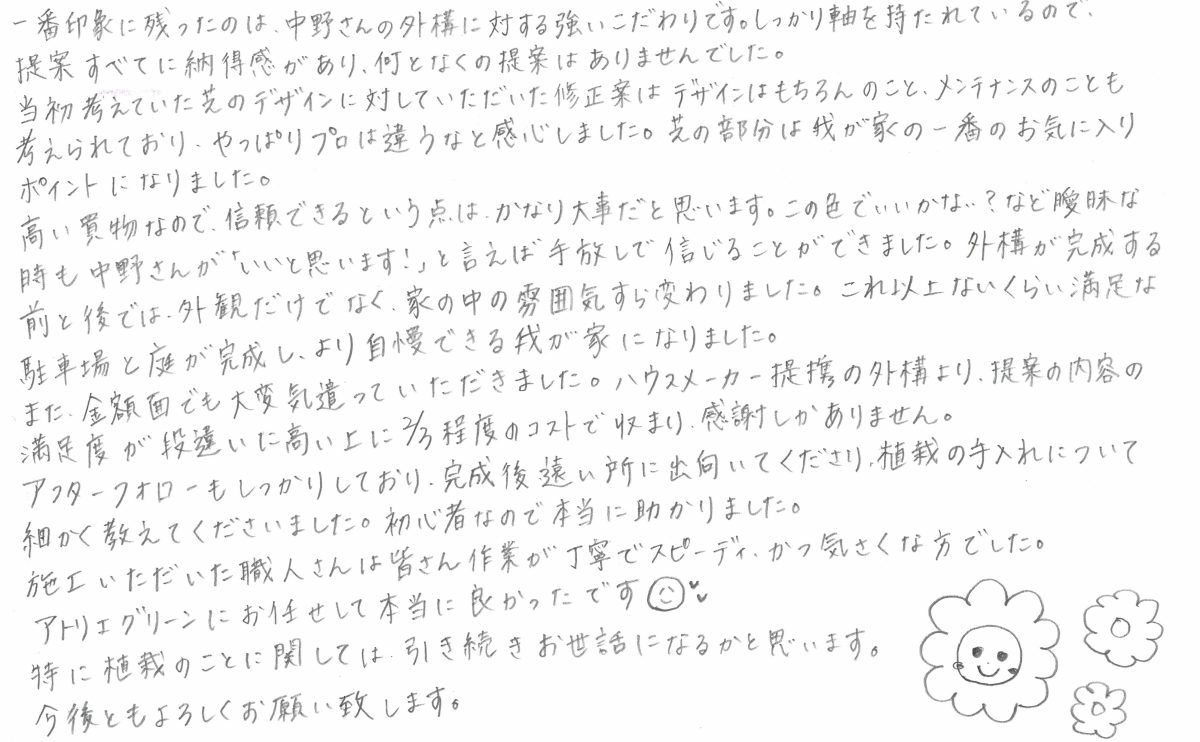 一番印象に残ったのは、中野さんの外構に対する強いこだわりです。しっかり軸を持たれているので、
提案すべてに納得感があり、何となくの提案はありませんでした。
当初考えていた芝のデザインに対していただいた修正案はデザインはもちろんのこと、メンテナンスのことも
考えられており、やっぱりプロは違うなと感心しました。芝の部分は我が家の一番のお気に入り
ポイントになりました。
高い買物なので、信頼できるという点は、かなり大事だと思います。この色でいいかな…？など曖昧な
時も中野さんが「いいと思います！」と言えば手放しで信じることができました。外構が完成する
前と後では、外観だけでなく、家の中の雰囲気すら変わりました。これ以上ないくらい満足な
駐車場と庭が完成し、より自慢できる我が家になりました。
また、金額面でも大変気遣っていただきました。ハウスメーカー提携の外構より、提案の内容の
満足度が段違いに高い上に2/3程度のコストで収まり、感謝しかありません。
アフターフォローもしっかりしており、完成後遠い所に出向いてくださり、植栽の手入れについて
細かく教えてくださいました。初心者なので本当に助かりました。
施工いただいた職人さんは皆さん作業が丁寧でスピーディ、かつ気さくな方でした。
アトリエグリーンにお任せして本当に良かったです
特に植栽のことに関しては、引き続きお世話になるかと思います。
今後ともよろしくお願い致します。